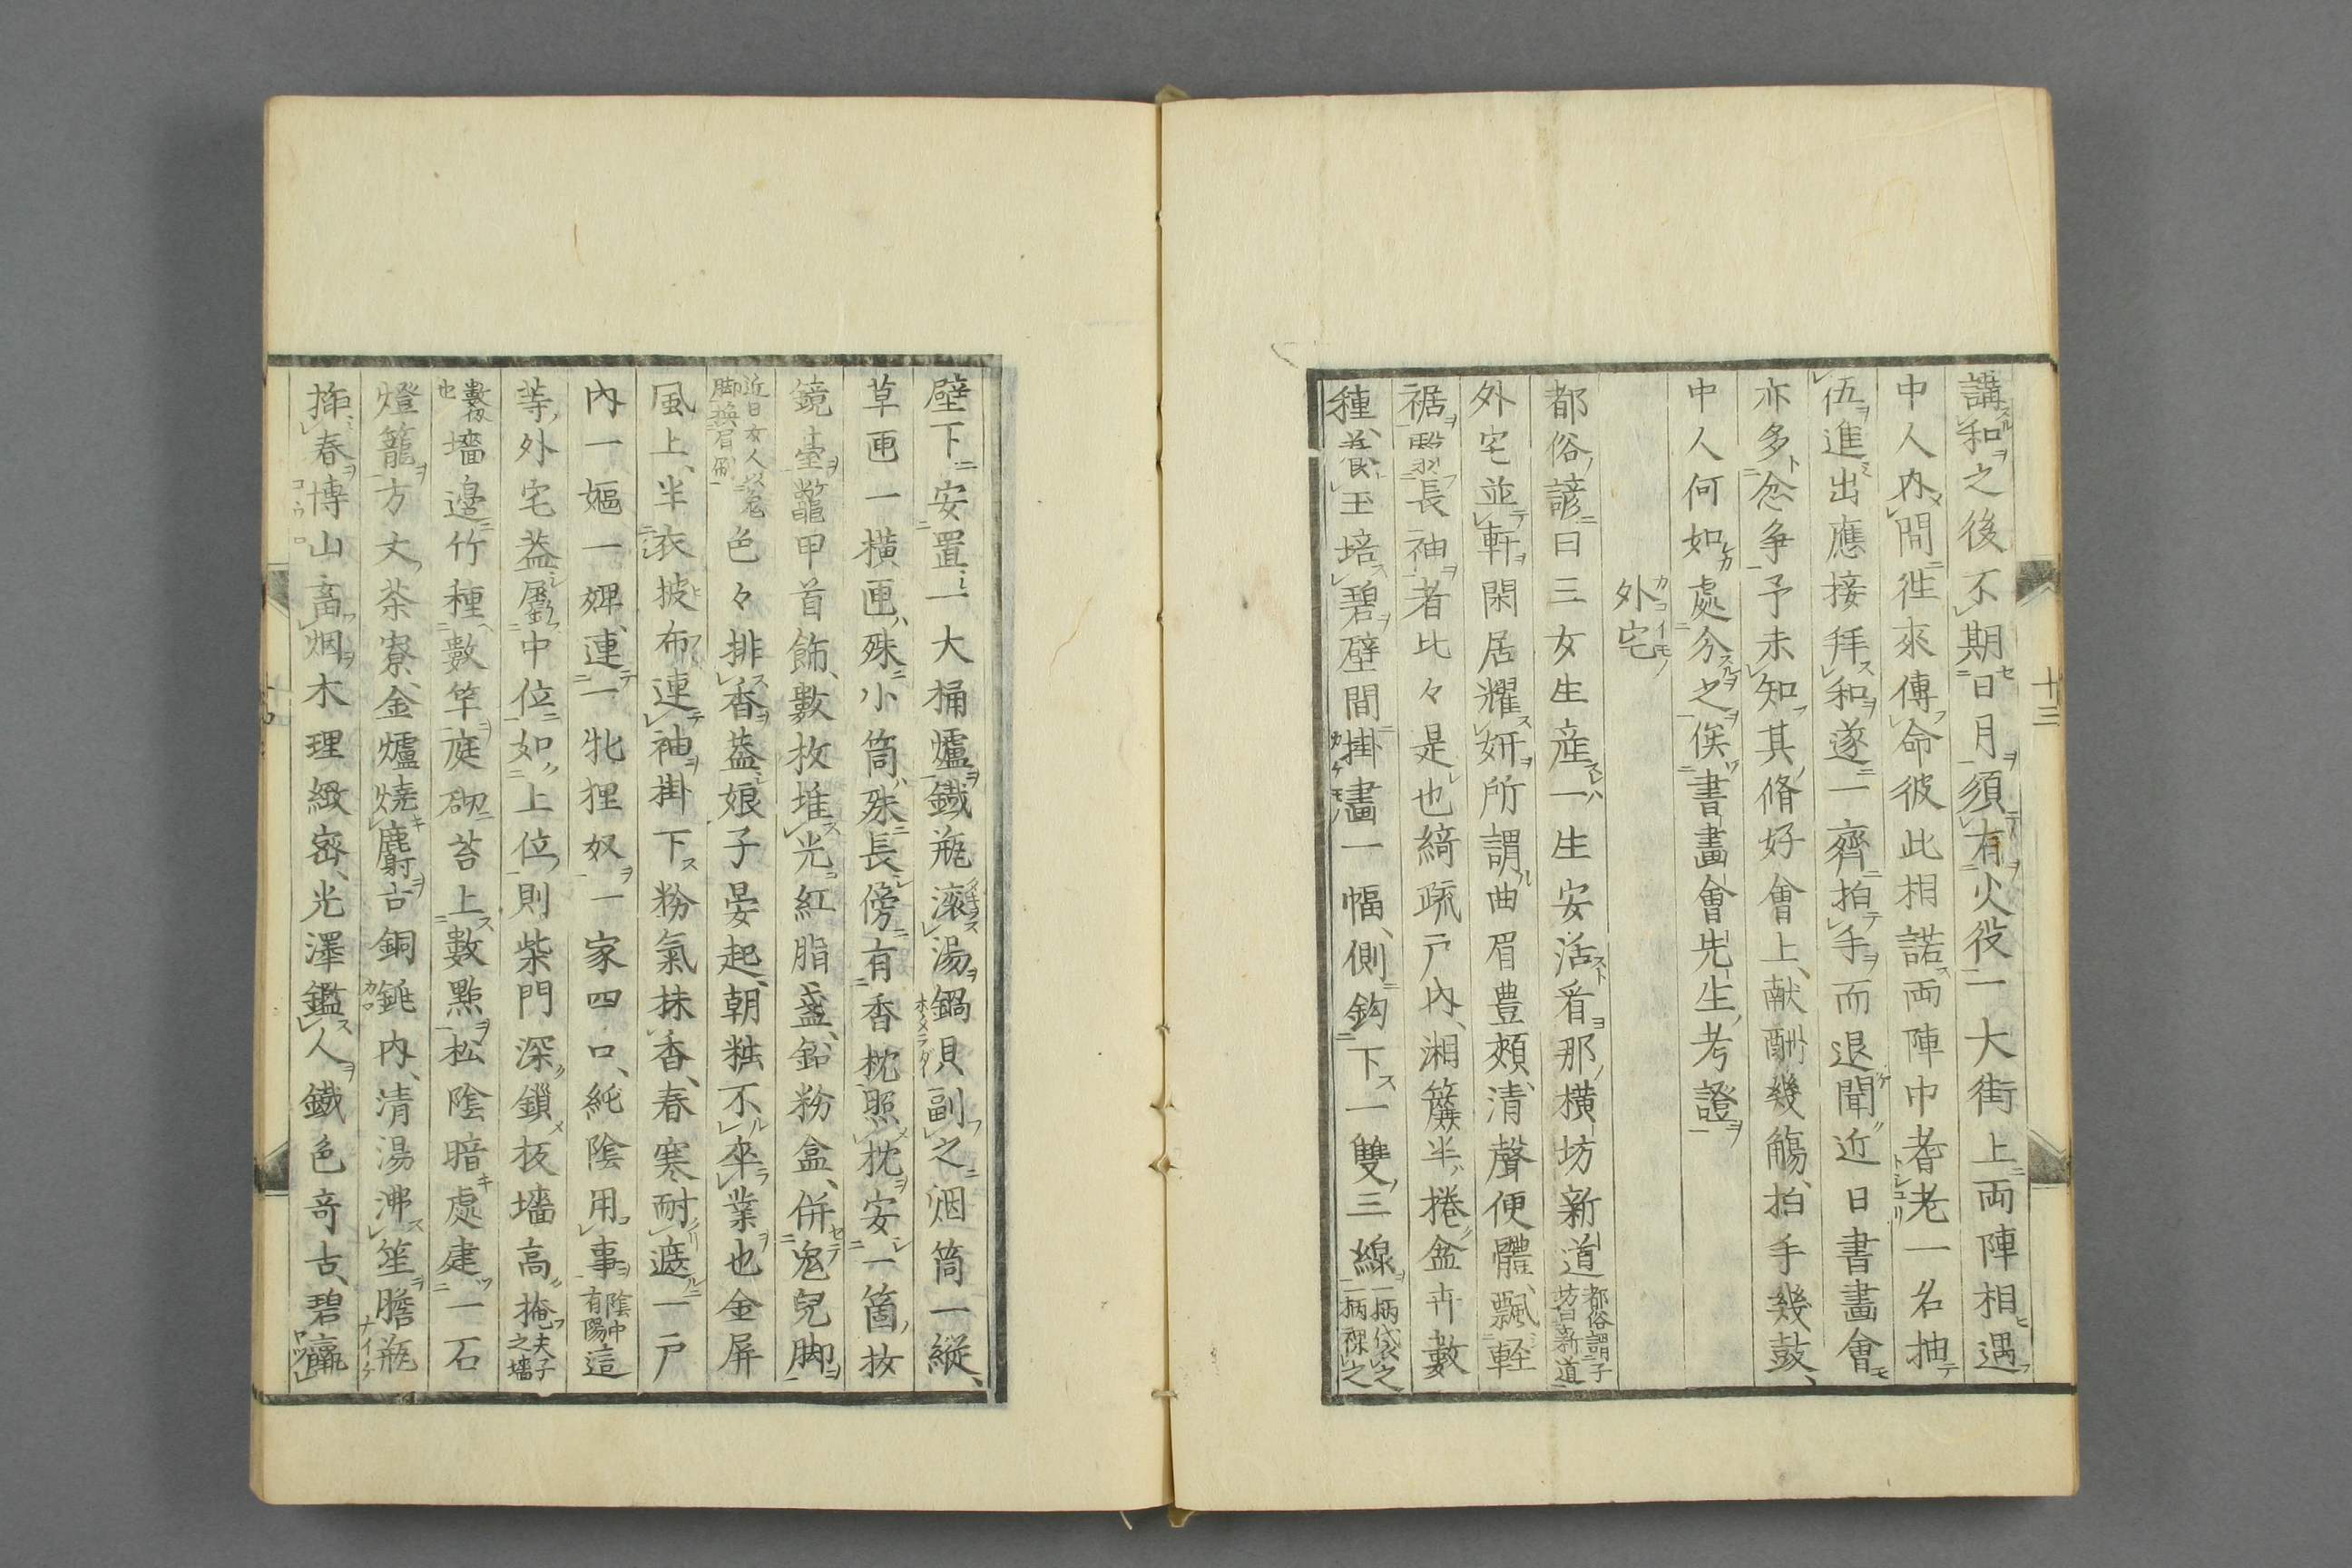 講和之後不期日月須有火役一大街上両陣相遇
中人内間徃來傳命彼此相諾両陣中耆老一名抽
伍進出應接拜和遂一齊拍手而退聞近日書畫會
亦多念争予未知其脩好會上献酬幾觴拍手幾鼓
中人何如處分之俟書畫會先生考證
外宅
都俗諺曰三女生産一生安活看那横坊新道都俗謂子坊曰新道
外宅並軒閑居耀妍所謂曲眉豊頬清聲便體飄軽
裾翳長袖者比々是也綺疏戸内湘簾半捲盆卉數
種養玉培碧壁間掛畫一幅側鈎下一雙三線一柄袋之一柄裸之
十三
壁下安置一大桶爐鐵瓶滚湯鍋貝副之烟筒一縦
草匣一横匣殊小筒殊長傍有香枕照枕安一箇抜
鏡臺鼈甲首飾數枚堆光紅脂盞鉛粉盒併兔兒脚
近日女人以兔脚換眉刷色々排香蓋娘子晏起朝粧不卒業也金屏
風上半衣披布連袖掛下粉氣抹香春寒耐遮一戸
内一嫗一婢連一牝狸奴一家四口純陰用事陰中有陽這
等外宅蓋屬中位如上位則柴門深鎖板墻高掩夫子之墻
數仭也墻邉竹種數竿庭砌苔上數點松陰暗處建一石
燈籠方丈茶寮金爐焼麝古銅錘内清湯沸笙膽瓶
挿春博山畜烟木理緻密光澤鑑人鐵色奇古碧